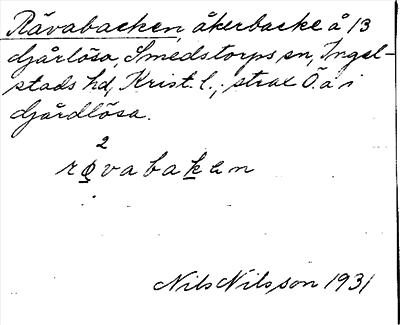 Rävabacken, åkerbacke å 13
Gårlösa, Smedstorps sn, Ingel-
stads hd, Krist. l., strax Ö. å i
Gårdlösa.
2
røvabaken
Nils Nilsson 1931